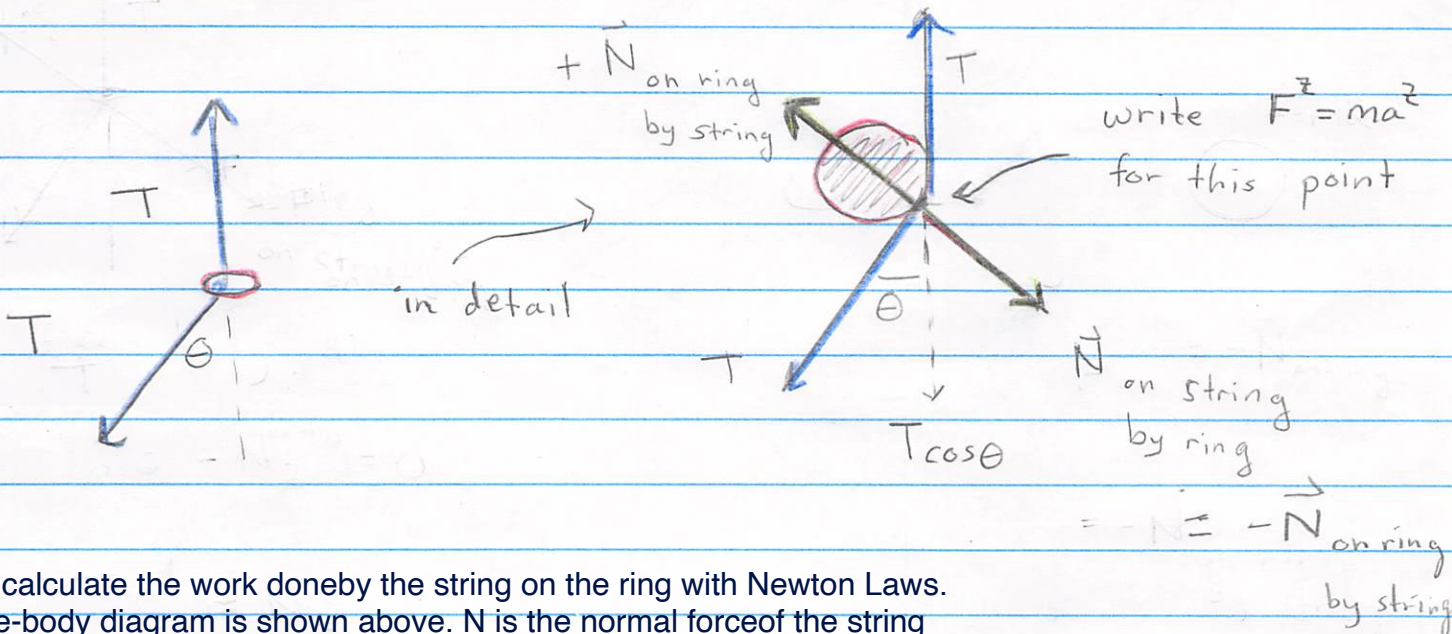 + N⃗ on ring
by string
T
write F^z = ma^z
for this point
T
in detail
T
θ
θ
T
N⃗
on string
by ring
T cosθ
= -N⃗ on ring
by string
calculate the work doneby the string on the ring with Newton Laws.
e-body diagram is shown above. N is the normal forceof the string